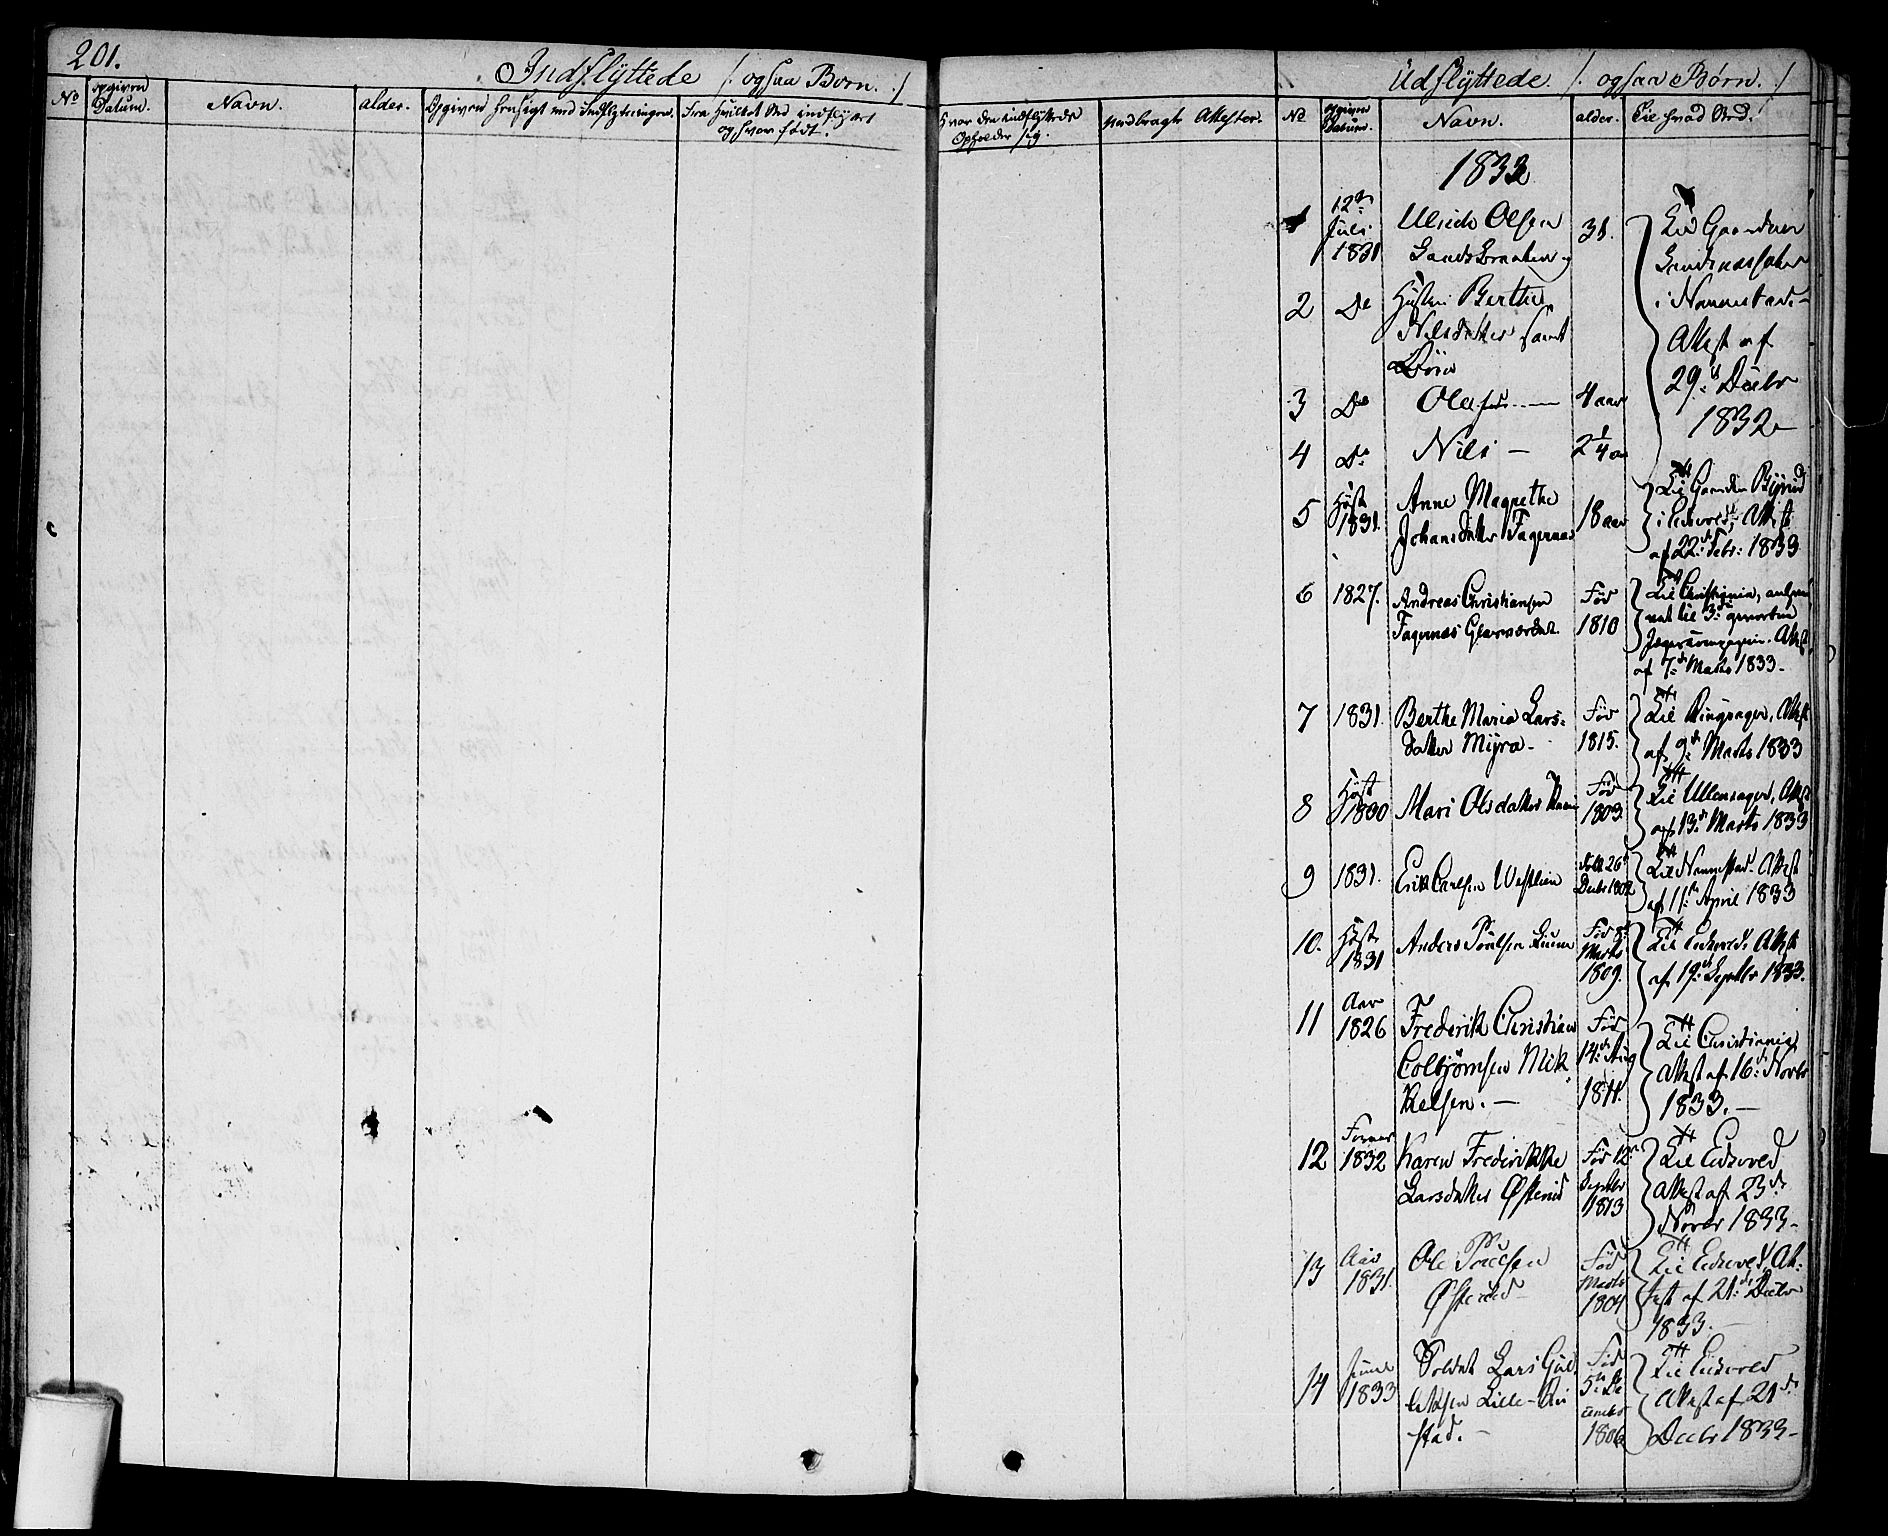 201.
Indflyttede /: ogsaa Børn. :/
Udflyttede. /: ogsaa Børn. :/
No
opgiven Datum.
Navn.
alder.
Opgiven Hensigt med Indflytningen.
Fra hvilket Sted indflyttet og hvor født.
Hvor den indflyttede Opholder sig.
Medbragte Attester.
No
opgiven Datum.
Navn.
alder.
Til hvad Sted.
1833
1
12te Juli 1831
Ulrich Olsen
31.
Til Gaarden
i Nannestad
Attest af
29de Decbr
1832
2
Do
Hustru Berthe
Nilsdatter samt
Børn
3
Do
Ole
4 aar
4
Do
Nils —
2 1/4 aar
5
Høst 1831.
Anne Magrethe
Johansdatter Fagernæs
18 aar
Til Gaarden
i Eidsvold, Attest
af 22de Febr: 1833
6
1827.
Andreas Christiansen
Fagernæs Glasværket.
Fød 1810
Til Christiania,
Attest
af 7de Marts 1833-
7
1831.
Berthe Maria Lars-
datter Myra-
Fød 1815.
Til Ringsager, Attest
af 9de Marts 1833
8
Høst 1830
Mari Olsdatter
Fød 1803.
Til Ullensager, Attest
af 13de Marts 1833
9
1831.
Erik Carlsen Westlien
Decbr 1802
Til Nannestad. Attest
af 11te April 1833
10.
Høst 1831
Anders Poulsen
Fød Marts 1809.
Til Eidsvold, Attest
af 19de Septbr 1833.
11
Aar 1826
Frederik Christian
Colbjørnsen Mik-
kelsen. —
Fød 14de Aug 1811.
Til Christiania
Attest af 16de Novbr
1833. —
12
1832
Karen Frederikke
Larsdatter Østerud
Fød 12te Septbr 1813
Til Eidsvold
Attest af 23de
Novbr 1833-
13
Aar 1831.
Ole Poulsen
Østerud-
Fød Marts 1804
Til Eidsvold, At-
test af 21de Decbr
1833.-
14
1833
Soldat Lars Gul-
Lille-
stad.-
Fød 5te De cember 1806
Til Eidsvold
Attest af 21de
Decbr 1833-